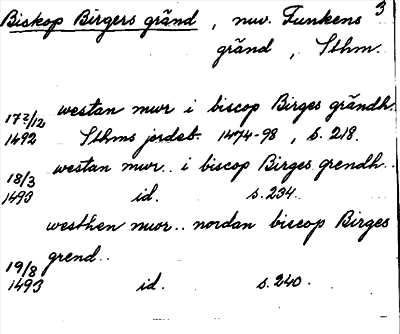 Biskop Birgers gränd, nuv. Funkens 3
gränd, Sthm.
17 2/12 westan mwr i biscop Birges grändh.
1492 Sthms jordeb. 1474-98, s. 218.
18/3 westan mwr.. i biscop Birges grendh..
1493 id. s. 234.
westhen mwr.. nordan biscop Birges
19/8 grend..
1493 id. s. 240.